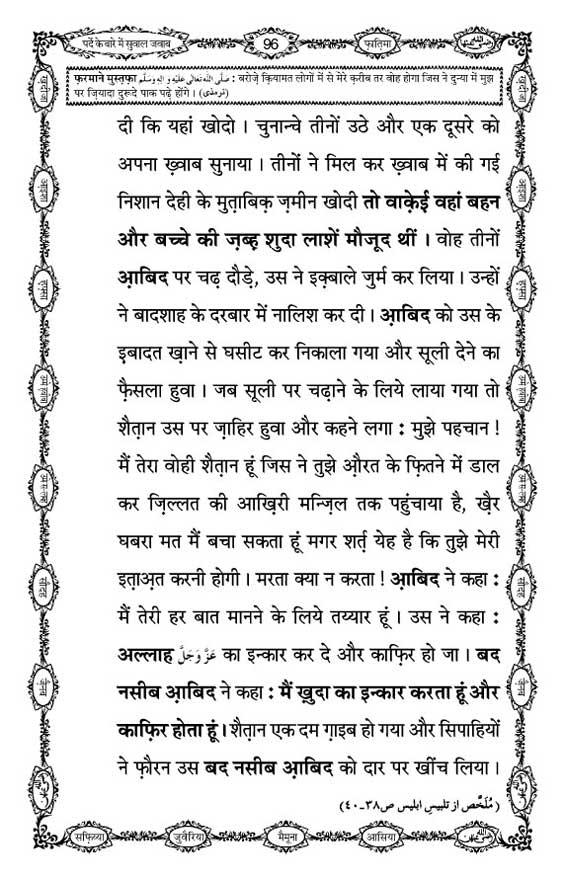 पर्दे के बारे में सुवाल जवाब
96
फ़ातिमा
رضی اللہ عنہن
फ़रमाने मुस्तफ़ा صَلَّى اللهُ تَعَالٰى عَلَيْهِ وَاٰلِهٖ وَسَلَّم : बरोज़े क़ियामत लोगों में से मेरे क़रीब तर वोह होगा जिस ने दुन्या में मुझ
पर ज़ियादा दुरूदे पाक पढ़े होंगे । (ترمذی)
दी कि यहां खोदो । चुनान्चे तीनों उठे और एक दूसरे को
अपना ख़्वाब सुनाया । तीनों ने मिल कर ख़्वाब में की गई
निशान देही के मुत़ाबिक़ ज़मीन खोदी तो वाक़ेई वहां बहन
और बच्चे की ज़ब्ह़ शुदा लाशें मौजूद थीं । वोह तीनों
आ़बिद पर चढ़ दौड़े, उस ने इक़्बाले जुर्म कर लिया । उन्हों
ने बादशाह के दरबार में नालिश कर दी । आ़बिद को उस के
इ़बादत ख़ाने से घसीट कर निकाला गया और सूली देने का
फ़ैसला हुवा । जब सूली पर चढ़ाने के लिये लाया गया तो
शैत़ान उस पर ज़ाहिर हुवा और कहने लगा : मुझे पहचान !
मैं तेरा वोही शैत़ान हूं जिस ने तुझे औ़रत के फ़ितने में डाल
कर ज़िल्लत की आख़िरी मन्ज़िल तक पहुंचाया है, ख़ैर
घबरा मत मैं बचा सकता हूं मगर शर्त़ येह है कि तुझे मेरी
इत़ाअ़त करनी होगी । मरता क्या न करता ! आ़बिद ने कहा :
मैं तेरी हर बात मानने के लिये तय्यार हूं । उस ने कहा :
अल्लाह عَزَّوَجَلَّ का इन्कार कर दे और काफ़िर हो जा । बद
नसीब आ़बिद ने कहा : मैं ख़ुदा का इन्कार करता हूं और
काफ़िर होता हूं । शैत़ान एक दम ग़ाइब हो गया और सिपाहियों
ने फ़ौरन उस बद नसीब आ़बिद को दार पर खींच लिया ।
(مُلَخَّص از تلبیسِ ابلیس ص۳۸۔۴۰)
सफ़िय्या
जुवैरिया
मैमूना
आसिया